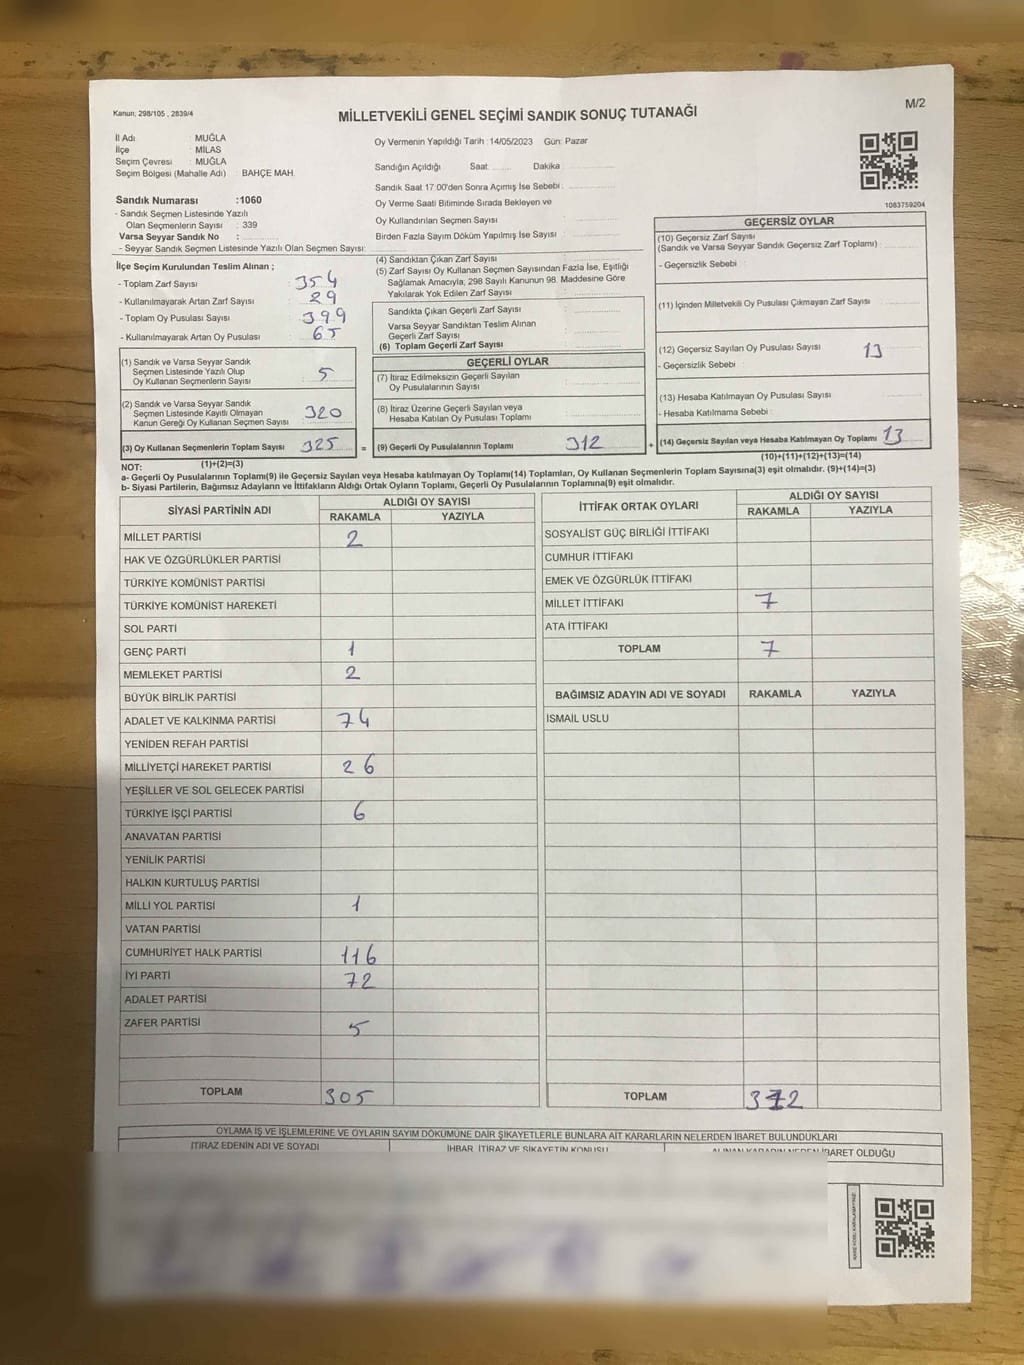 Kanun; 298/105 , 2839/4
MİLLETVEKİLİ GENEL SEÇİMİ SANDIK SONUÇ TUTANAĞI
M/2
İl Adı : MUĞLA
İlçe : MİLAS
Seçim Çevresi : MUĞLA
Seçim Bölgesi (Mahalle Adı) : BAHÇE MAH.
Oy Vermenin Yapıldığı Tarih :14/05/2023 Gün: Pazar
Sandığın Açıldığı Saat:........ Dakika
Sandık Saat 17:00'den Sonra Açımış İse Sebebi :
Oy Verme Saati Bitiminde Sırada Bekleyen ve
Oy Kullandırılan Seçmen Sayısı :
Birden Fazla Sayım Döküm Yapılmış İse Sayısı :
1083759204
Sandık Numarası :1060
- Sandık Seçmen Listesinde Yazılı
Olan Seçmenlerin Sayısı : 339
Varsa Seyyar Sandık No :
- Seyyar Sandık Seçmen Listesinde Yazılı Olan Seçmen Sayısı:
İlçe Seçim Kurulundan Teslim Alınan ;
- Toplam Zarf Sayısı : 354
- Kullanılmayarak Artan Zarf Sayısı : 29
- Toplam Oy Pusulası Sayısı : 399
- Kullanılmayarak Artan Oy Pusulası : 65
(1) Sandık ve Varsa Seyyar Sandık
Seçmen Listesinde Yazılı Olup
Oy Kullanan Seçmenlerin Sayısı : 5
(2) Sandık ve Varsa Seyyar Sandık
Seçmen Listesinde Kayıtlı Olmayan
Kanun Gereği Oy Kullanan Seçmen Sayısı : 320
(3) Oy Kullanan Seçmenlerin Toplam Sayısı : 325 =
(1)+(2)=(3)
(4) Sandıktan Çıkan Zarf Sayısı :
(5) Zarf Sayısı Oy Kullanan Seçmen Sayısından Fazla İse, Eşitliği
Sağlamak Amacıyla, 298 Sayılı Kanunun 98. Maddesine Göre
Yakılarak Yok Edilen Zarf Sayısı :
Sandıkta Çıkan Geçerli Zarf Sayısı :
Varsa Seyyar Sandıktan Teslim Alınan
Geçerli Zarf Sayısı :
(6) Toplam Geçerli Zarf Sayısı :
GEÇERLİ OYLAR
(7) İtiraz Edilmeksizin Geçerli Sayılan
Oy Pusulalarının Sayısı :
(8) İtiraz Üzerine Geçerli Sayılan veya
Hesaba Katılan Oy Pusulası Toplamı :
(9) Geçerli Oy Pusulalarının Toplamı : 312 +
GEÇERSİZ OYLAR
(10) Geçersiz Zarf Sayısı
(Sandık ve Varsa Seyyar Sandık Geçersiz Zarf Toplamı) :
- Geçersizlik Sebebi :
(11) İçinden Milletvekili Oy Pusulası Çıkmayan Zarf Sayısı :
(12) Geçersiz Sayılan Oy Pusulası Sayısı : 13
- Geçersizlik Sebebi :
(13) Hesaba Katılmayan Oy Pusulası Sayısı :
- Hesaba Katılmama Sebebi :
(14) Geçersiz Sayılan veya Hesaba Katılmayan Oy Toplamı : 13
(10)+(11)+(12)+(13)=(14)
NOT:
a- Geçerli Oy Pusulalarının Toplamı(9) ile Geçersiz Sayılan veya Hesaba katılmayan Oy Toplamı(14) Toplamları, Oy Kullanan Seçmenlerin Toplam Sayısına(3) eşit olmalıdır. (9)+(14)=(3)
b- Siyasi Partilerin, Bağımsız Adayların ve İttifakların Aldığı Ortak Oyların Toplamı, Geçerli Oy Pusulalarının Toplamına(9) eşit olmalıdır.
SİYASİ PARTİNİN ADI ALDIĞI OY SAYISI
RAKAMLA YAZIYLA
MİLLET PARTİSİ 2
HAK VE ÖZGÜRLÜKLER PARTİSİ
TÜRKİYE KOMÜNİST PARTİSİ
TÜRKİYE KOMÜNİST HAREKETİ
SOL PARTİ
GENÇ PARTİ 1
MEMLEKET PARTİSİ 2
BÜYÜK BİRLİK PARTİSİ
ADALET VE KALKINMA PARTİSİ 74
YENİDEN REFAH PARTİSİ
MİLLİYETÇİ HAREKET PARTİSİ 26
YEŞİLLER VE SOL GELECEK PARTİSİ
TÜRKİYE İŞÇİ PARTİSİ 6
ANAVATAN PARTİSİ
YENİLİK PARTİSİ
HALKIN KURTULUŞ PARTİSİ
MİLLİ YOL PARTİSİ 1
VATAN PARTİSİ
CUMHURİYET HALK PARTİSİ 116
İYİ PARTİ 72
ADALET PARTİSİ
ZAFER PARTİSİ 5
TOPLAM 305
İTTİFAK ORTAK OYLARI ALDIĞI OY SAYISI
RAKAMLA YAZIYLA
SOSYALİST GÜÇ BİRLİĞİ İTTİFAKI
CUMHUR İTTİFAKI
EMEK VE ÖZGÜRLÜK İTTİFAKI
MİLLET İTTİFAKI 7
ATA İTTİFAKI
TOPLAM 7
BAĞIMSIZ ADAYIN ADI VE SOYADI RAKAMLA YAZIYLA
İSMAİL USLU
TOPLAM 312
OYLAMA İŞ VE İŞLEMLERİNE VE OYLARIN SAYIM DÖKÜMÜNE DAİR ŞİKAYETLERLE BUNLARA AİT KARARLARIN NELERDEN İBARET BULUNDUKLARI
İTİRAZ EDENİN ADI VE SOYADI İHBAR, İTİRAZ VE ŞİKAYETİN KONUSU ALINAN KARARIN NEDEN İBARET OLDUĞU